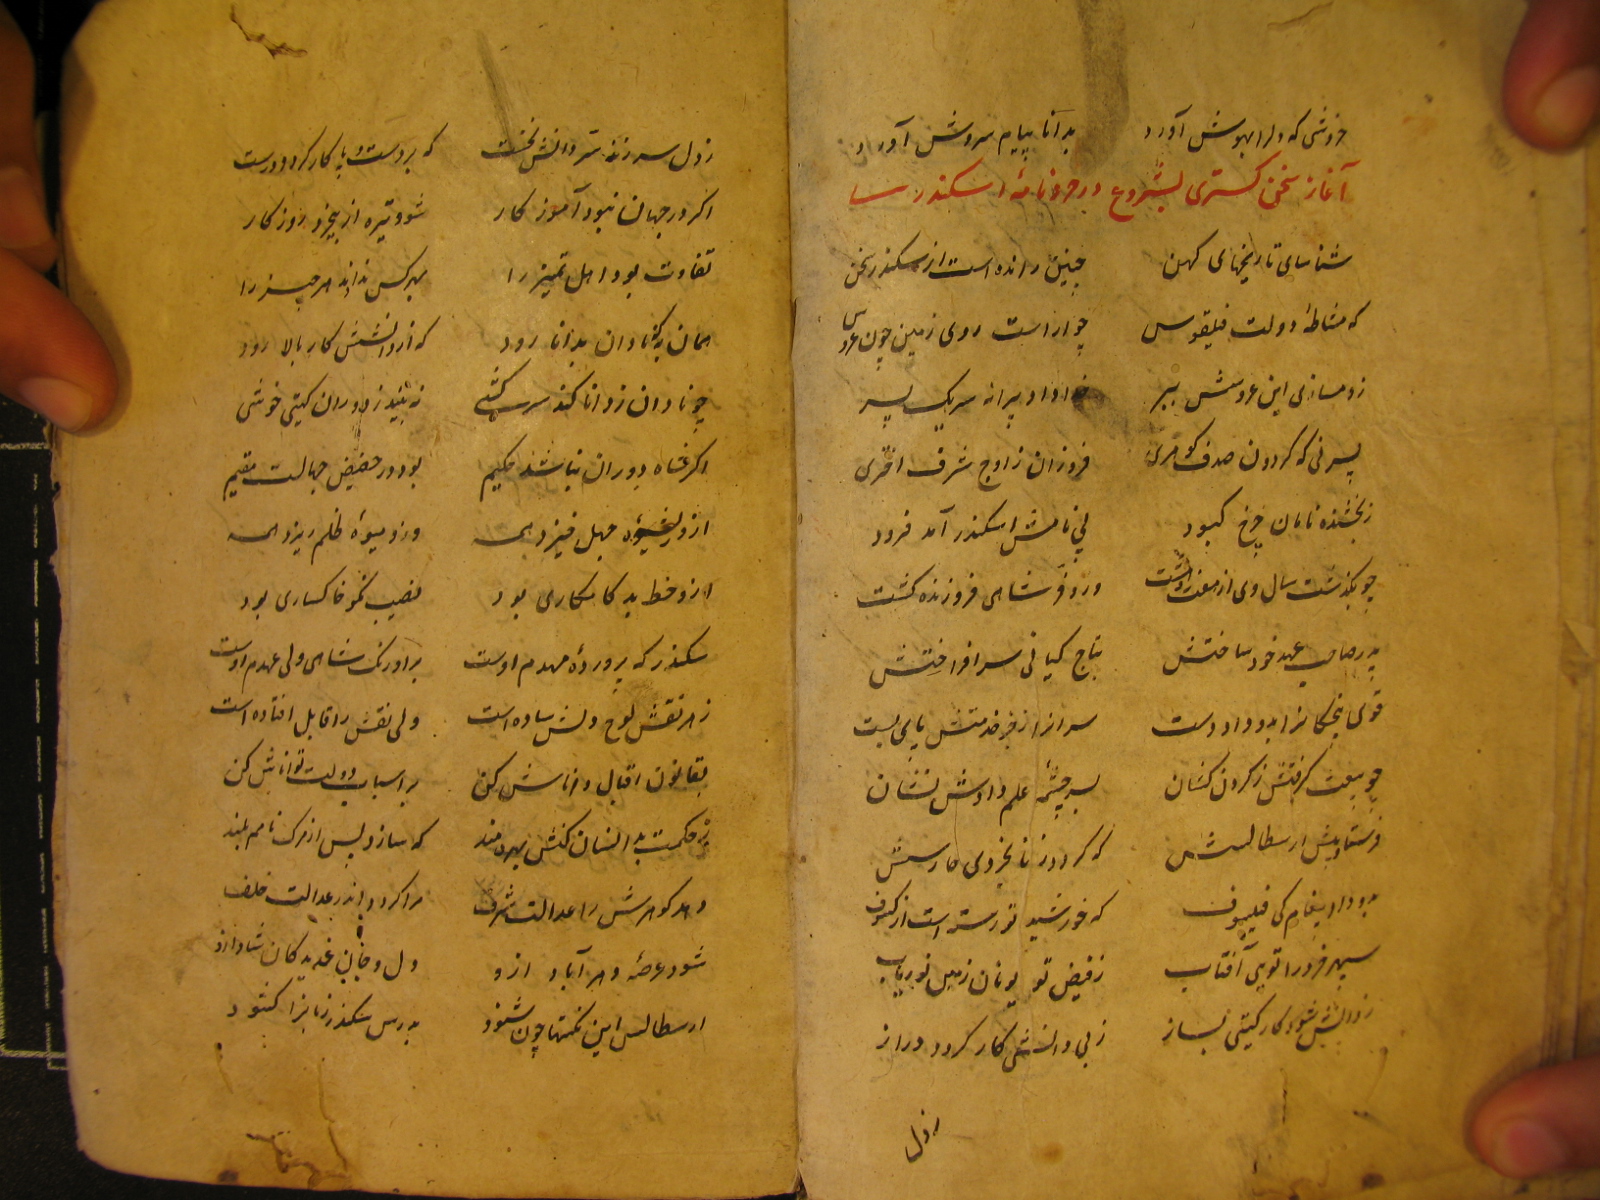 خروشی که دلرا بهوش آورد بدانا پیام سروش آورد
آغاز سخن گستری بشروع در خردنامهٔ اسکندر
شناسای تاریخهای کهن چنین رانده است از سکندر سخن
که مشاطهٔ دولت فیلقوس چو آراست روی زمین چون عروس
ز دمسازی این عروسش ببر خدا داد پیرانه سر یک پسر
پسر نی که گردون صدف گوهری فروزان ز اوج شرف اختری
ز بخشنده نامان چرخ کبود پی نامش اسکندر آمد فرود
چو بگذشت سال وی از هفت و هشت درو فر شاهی فروزنده گشت
عهد خود ساختش بتاج کیانی سرافراختش
قوی پنجگانرا بدو داد دست سرانرا ز خدمتش پای بست
چو بیعت گرفتش ز گردن کشان بسرچشمه علم دادش نشان
فرستاد پیش ارسطالسش که گردد ز نابخردی حارسش
بدو داد پیغام کی فیلسوف که خورشید تو رسته است از کسوف
سپهر خرد را تویی آفتاب ز فیض تو یونان زمین نوریاب
ز دانش شود کار گیتی بساز ز بی دانشی کار گردد دراز
ز دل
ز دل سر زند سر دانش نخست که بر دست و پا کار گردد درست
اگر در جهان نبود آموزگار شود تیره از بیخرد روزگار
تفاوت بود اهل تمییز را بهر کس نداند هر چیز را
همان به که نادان بدانا رود که از دانشش کار بالا رود
چو نادان ز دانا کند سرکشی نبیند ز دوران گیتی خوشی
اگر شاه دوران نباشد حکیم بود در حضیض جهالت مقیم
ازو شیوه جهل خیزد همه وزو میوهٔ ظلم ریزد همه
ازو خط بد کامکاری بود نصیب نکو خاکساری بود
سکندر که پروردهٔ مهدم اوست بر اورنگ شاهی ولی عهدم اوست
ز هر نقش لوح دلش ساده است ولی نقش را قابل افتاده است
بقانون اقبال دانااش کن بر اسباب دولت تواناش کن
ز حکمت بدانسان کنش بهره مند که سازد پس از مرگ نامم بلند
دهد گوهرش را عدالت شرف مرا گردد اندر عدالت خلف
شود عرصهٔ دهر آباد ازو دل و جان غمدیدگان شاد ازو
ارسطالس این نکتها چون شنود بدرس سکندر زبانرا گشود